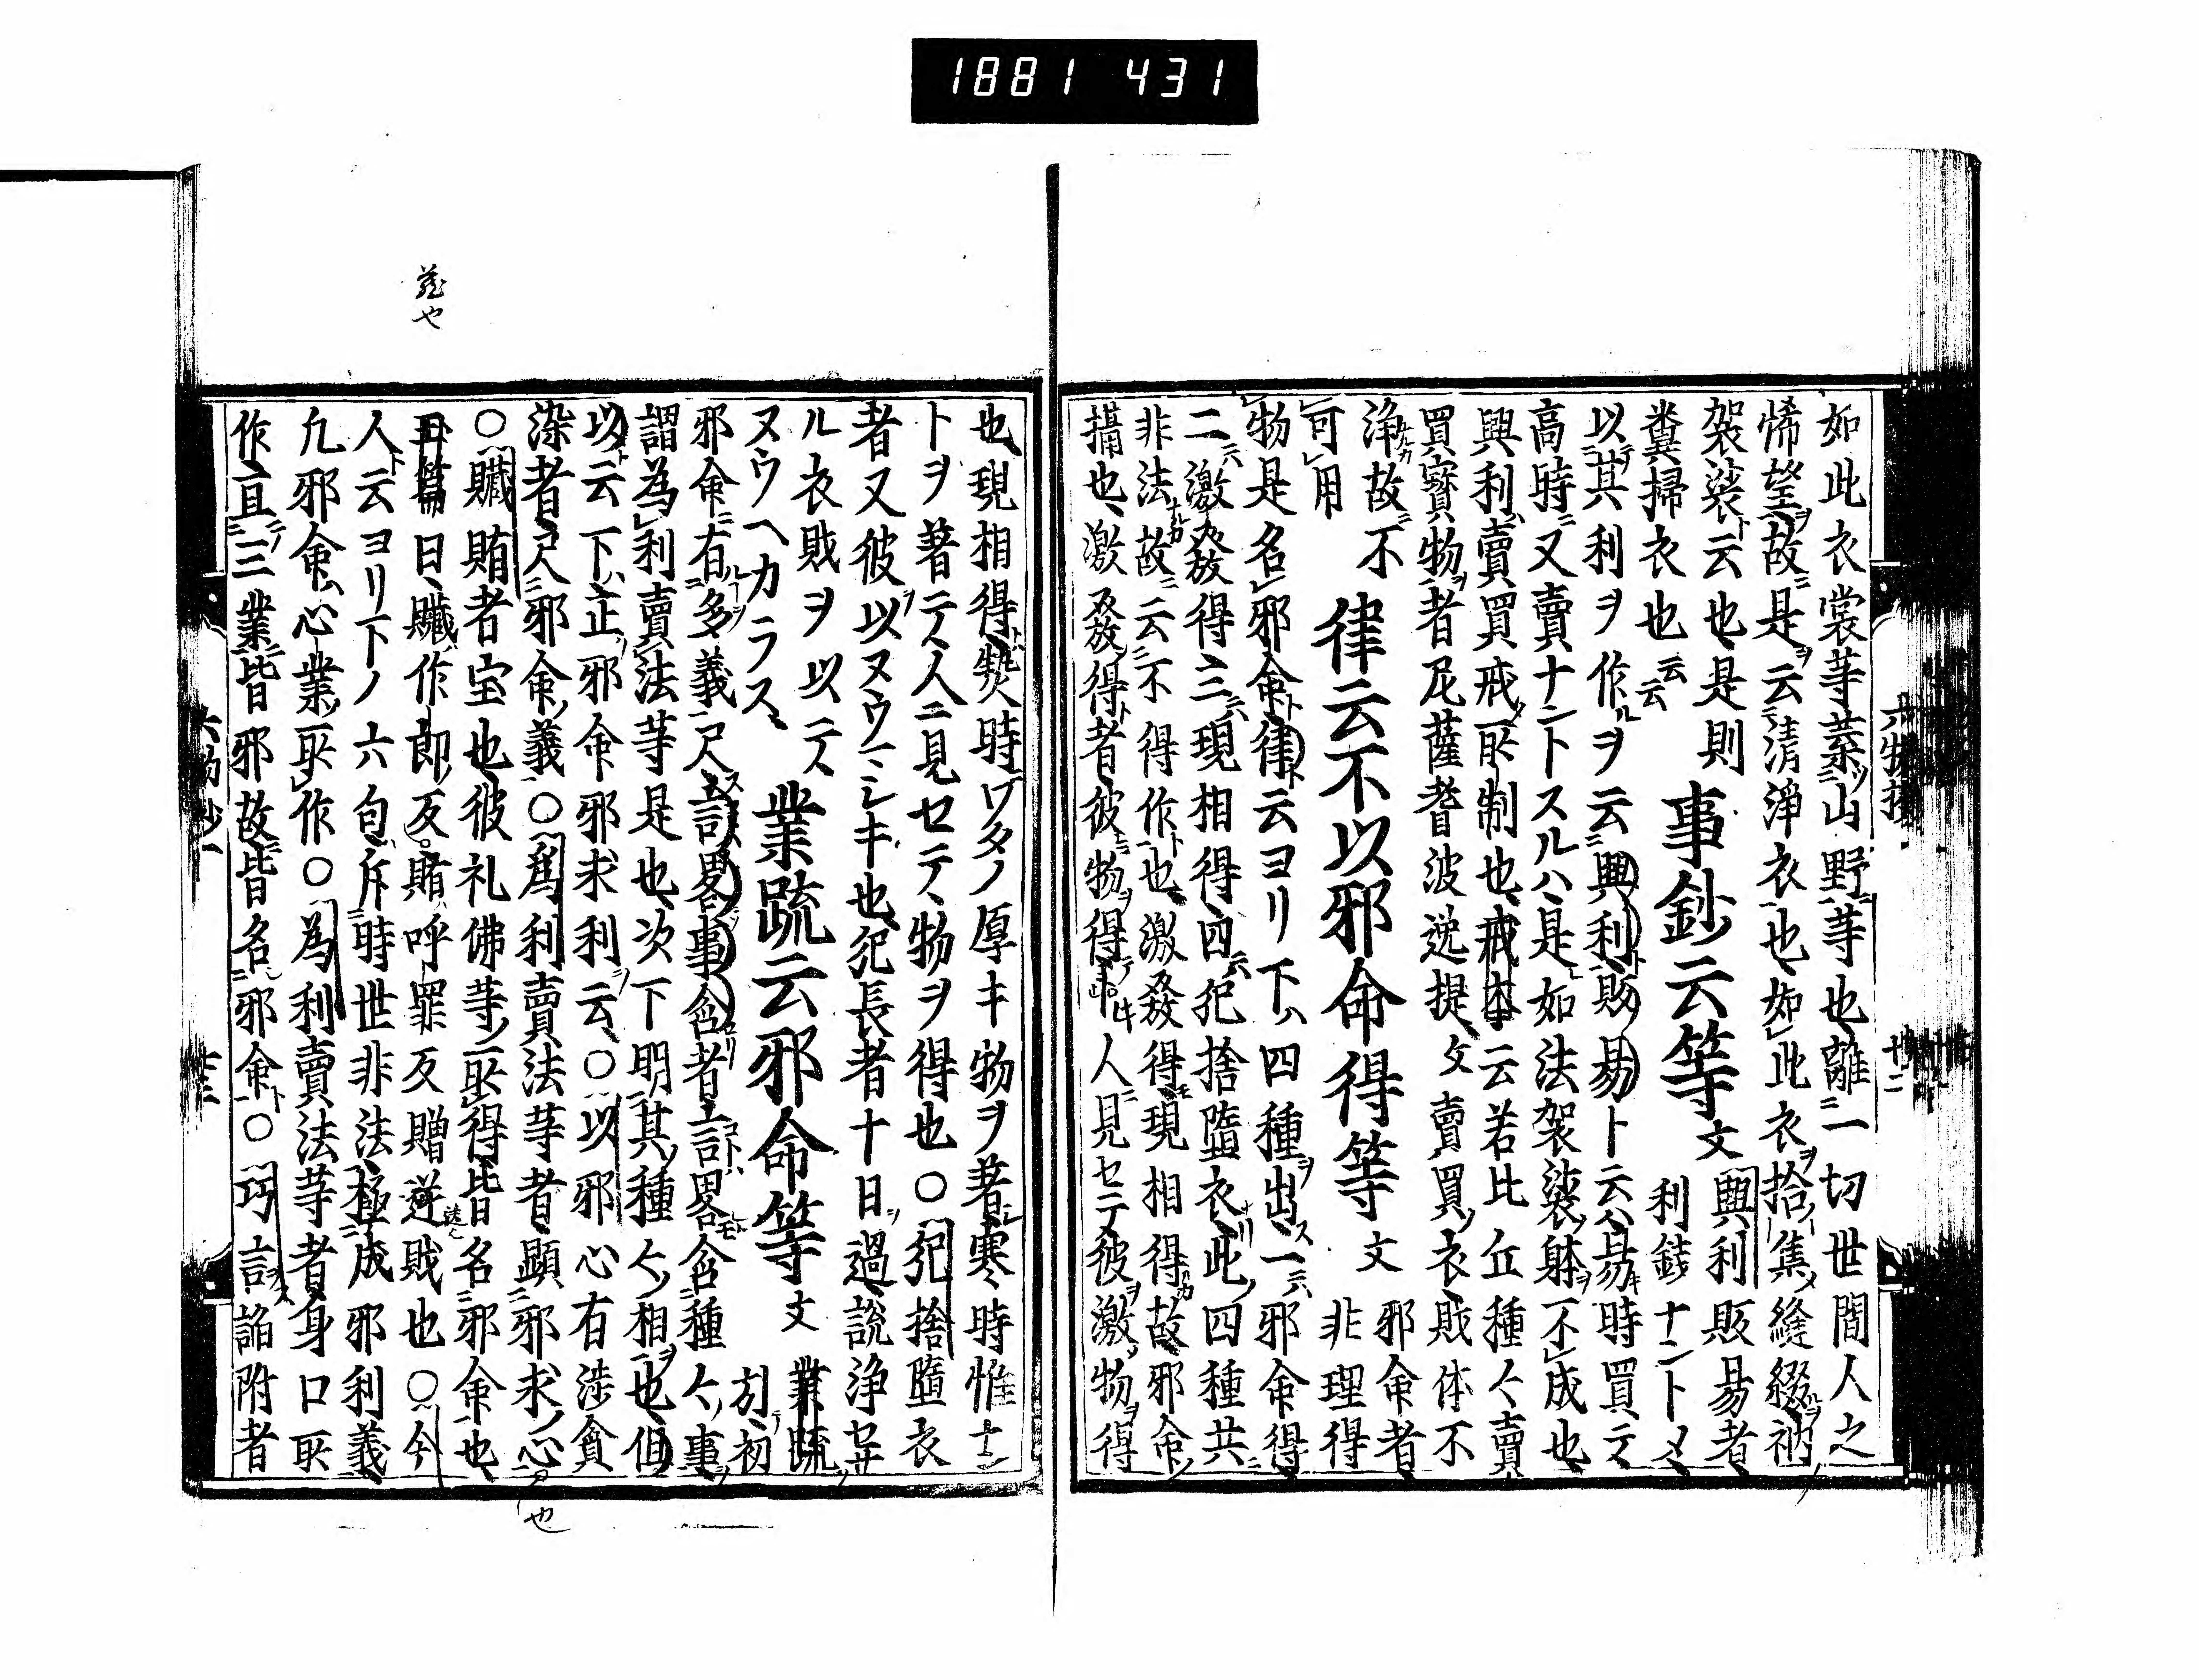 1881 431
如此衣裳等棄山野等也離一切世間人之
悕望故是云清淨衣也如此衣拾集縫綴衲
袈裟云也是則
糞掃衣也云云
事鈔云等文
興利販易者
利錢ナントメ
以其利ヲ作ルヲ云興利販易ト云ハ易キ時買テ
高時又賣ナントスルハ是如法袈裟躰不成也
興利賣買戒所制也戒本云若比丘種々賣
買寶物者尼薩耆波逸提文賣買衣財体不
淨故不
可用
律云不以邪命得等文
邪命者
非理得
物是名邪命律云ヨリ下ハ四種出一六邪命得
二六激發得三六現相得四六犯捨墮衣此四種共
非法故云不得作也激發得現相得故邪命
攝也激發得者彼物得人見セテ彼激物得
也現相得時ワタノ厚キ物ヲ著寒時惟
トヲ著テ人ニ見セテ物ヲ得也○犯捨墮衣
者又彼以ヌウヘシキ也犯長者十日過説淨セサ
ル衣財ヲ以テ
ヌウヘカラス
業疏云邪命等文
業疏
初
邪命有多義尺言畧事含者言畧含種々事
謂為利賣法等是也次下明其種々相也但
以云下正邪命邪求利云○以邪心有涉貪
染者尺邪命義○為利賣法等者顯邪求心
○贓賄者宝也彼礼佛等取得皆名邪命也
玉篇曰贓作郎反賄呼罪反贈遂財也○今
人云ヨリ下ノ六句斥時世非法極成邪利義
凡邪命心業取作○為利賣法等者身口取
作且三業皆邪故皆名邪命○巧言謟附者
也
六物抄
廿二
六物抄一